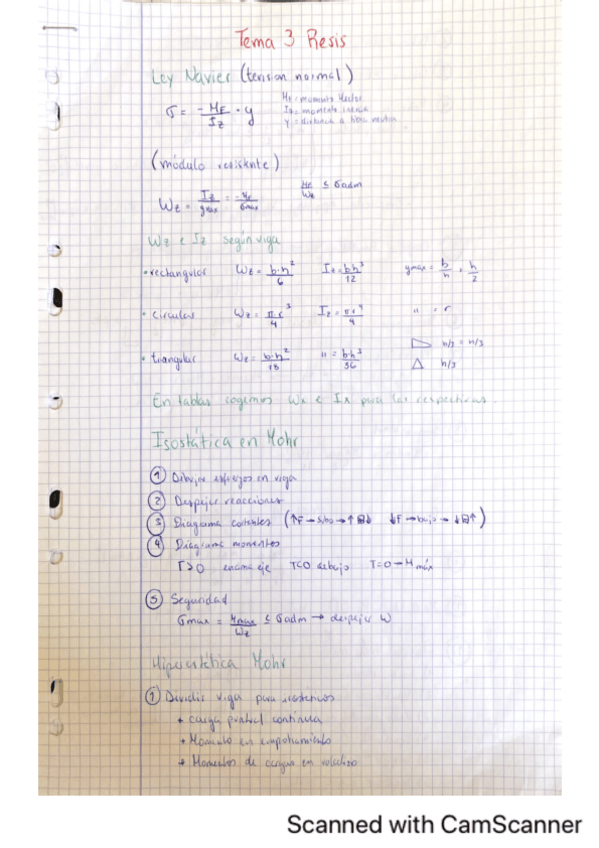 Tema 3 Resis
Ley Navier (tension normal)
σ = -MF/Iz · y
MF = momento flector
Iz = momento inercia
y = distancia a línea neutra
(módulo resistente)
Wz = Iz/ymax = -MF/σmax
MF/Wz ≤ σadm
Wz e Iz según viga
• rectangular Wz = b·h²/6 Iz = bh³/12 ymax = b/h, h/2
• circular Wz = πr³/4 Iz = πr⁴/4 " = r
• triangular Wz = b·h²/18 " = bh³/36
h/3 = h/3
h/3
En tablas cogemos Wx e Ix para las respectivas
Isostática en Mohr
① Dibujar esfuerzos en viga
② Despejar reacciones
③ Diagrama cortantes (↑F → subo → ↑ ↓ ↓F → bajo → ↓ ↑)
④ Diagrama momentos
T>0 encima eje T<0 debajo T=0 → M máx
⑤ Seguridad
σmax = Mmax/Wz ≤ σadm → despejar W
Hiperestática Mohr
① Dividir viga para
+ carga continua
+ Momento en empotramiento
+ Momentos de cargas en voladizo
Scanned with CamScanner